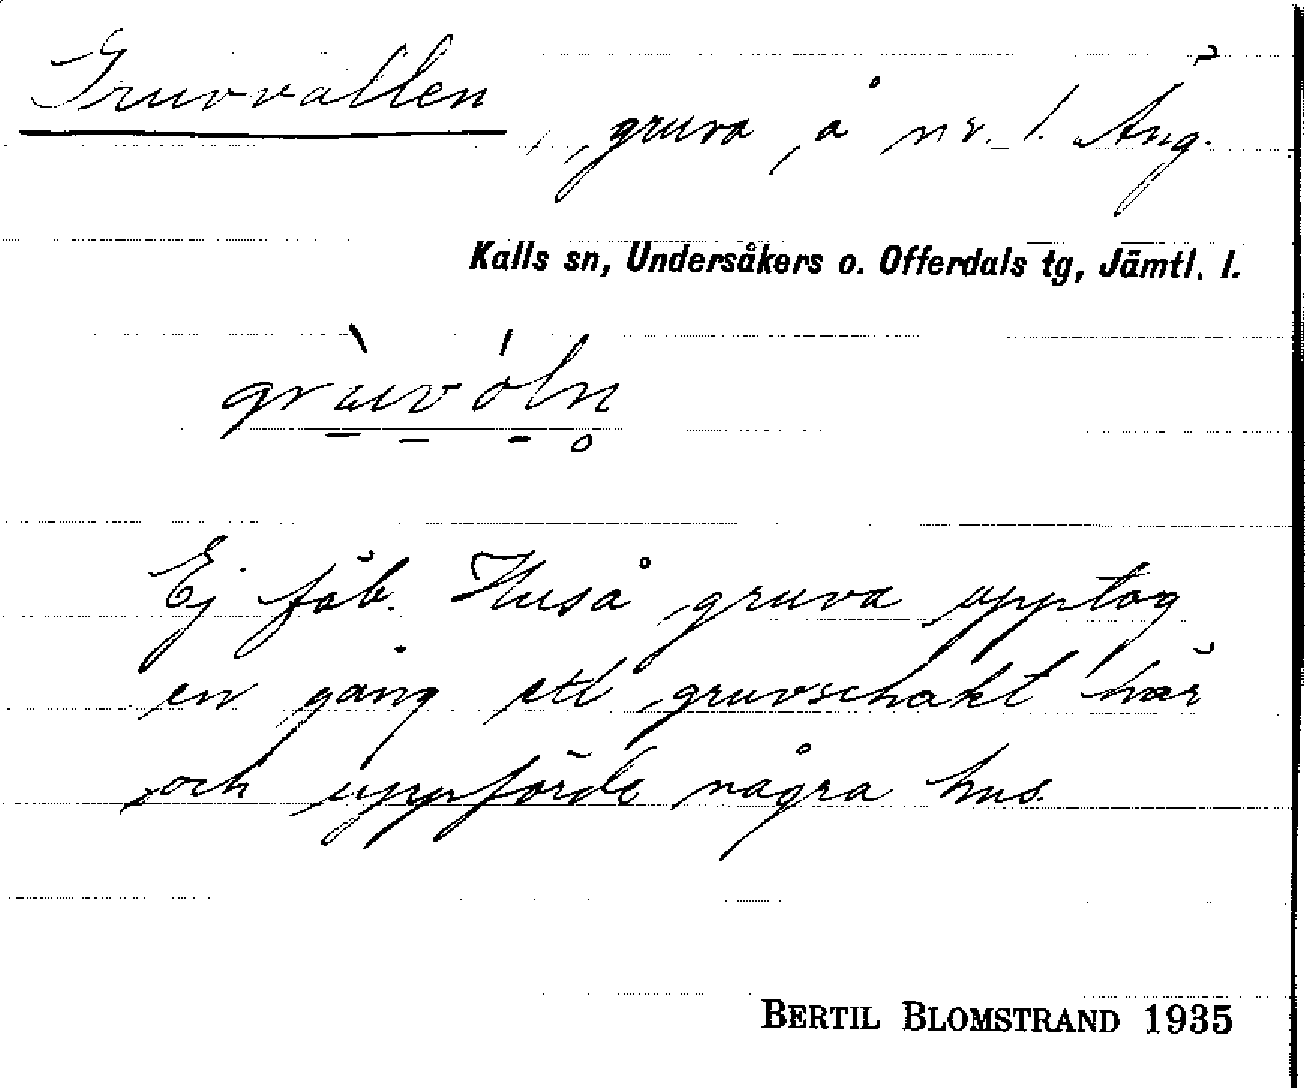 Gruvvallen, gruva, å nr. 1. Äng.
Kalls sn, Undersåkers o. Offerdals tg, Jämtl. l.
grùvóln̥
Ej fäb. Huså gruva upptog
en gång ett gruvschakt här
och uppförde några hus.
BERTIL BLOMSTRAND 1935